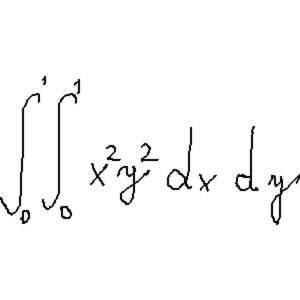 ∫₀¹ ∫₀¹ x² y² dx dy